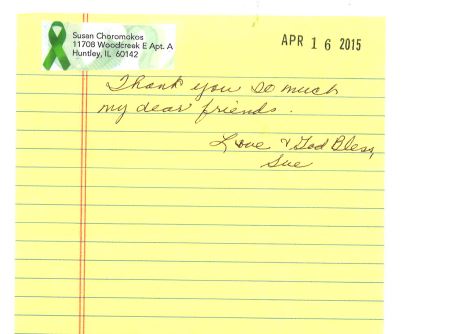 Susan Choromokos
11708 Woodcreek E Apt. A
Huntley, IL 60142
APR 16 2015
Thank you so much
my dear friends.
Love & God Bless,
Sue